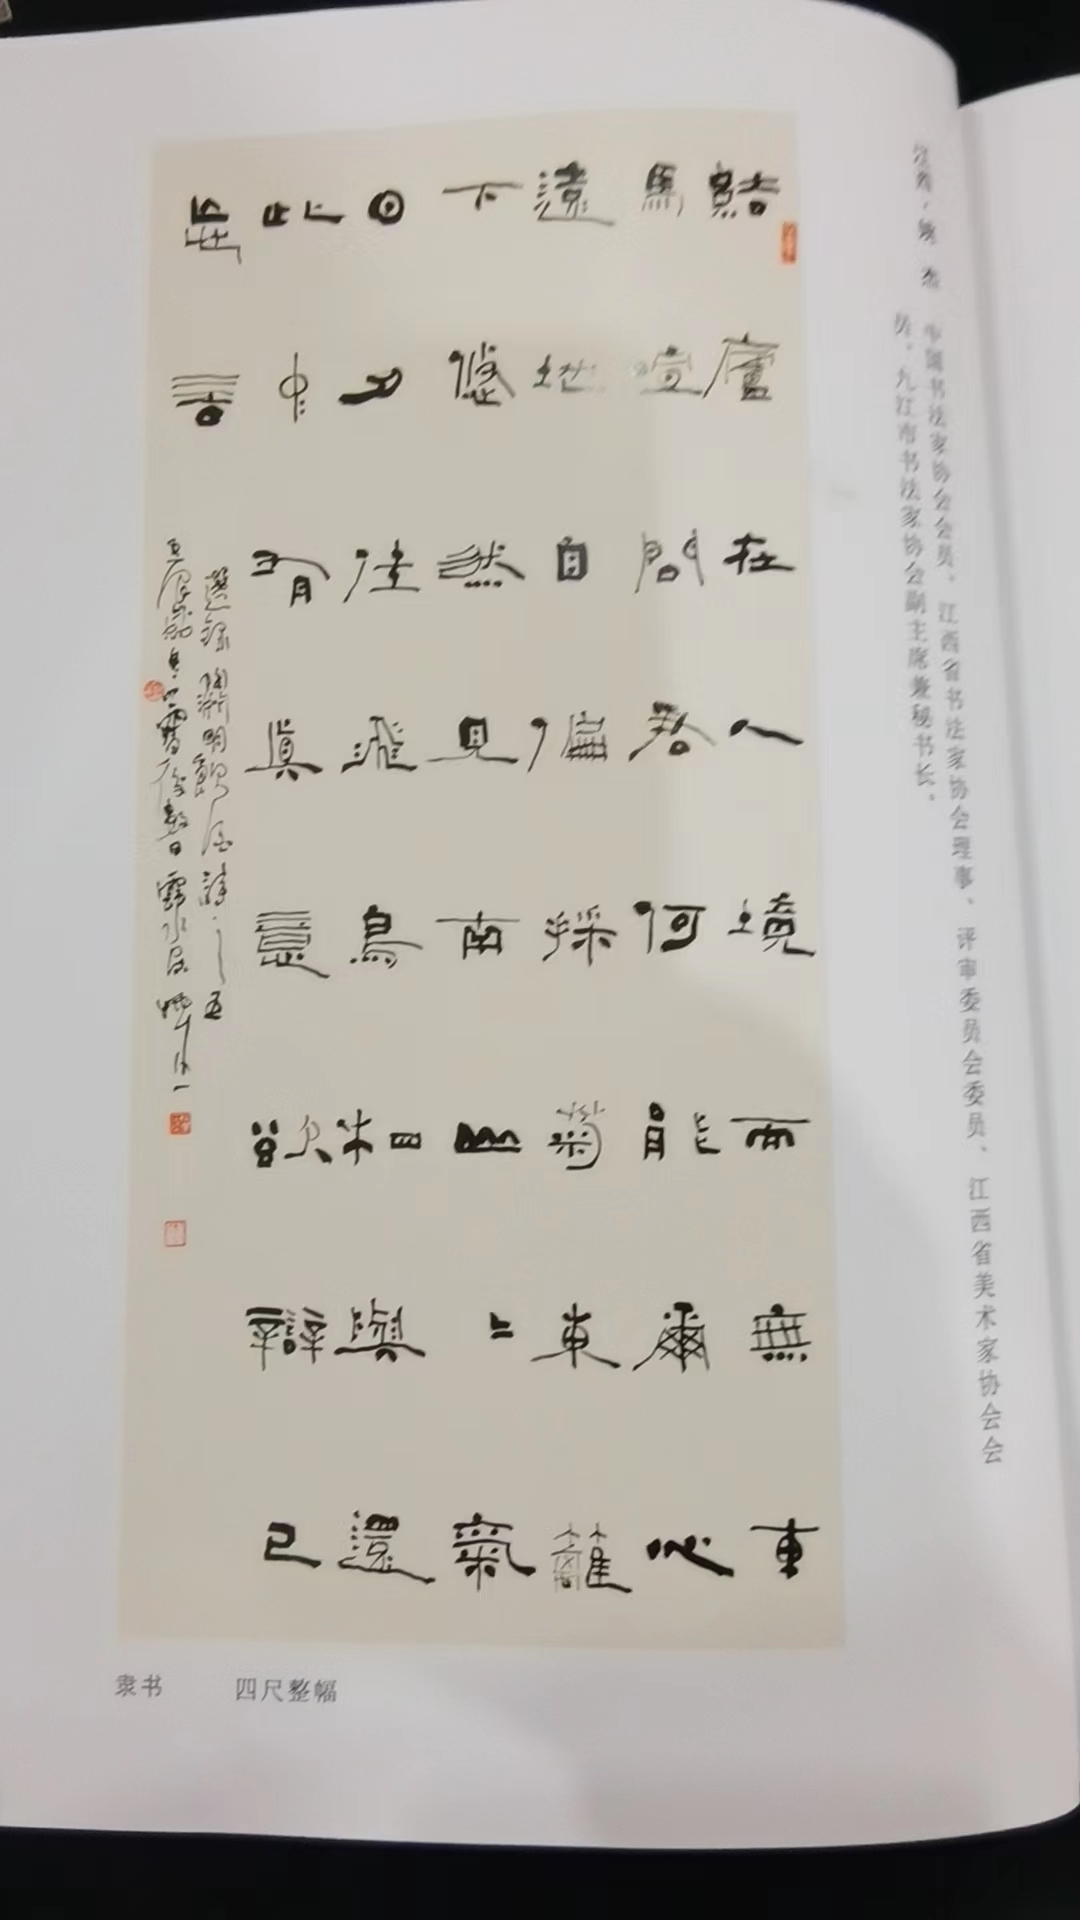 江西·
中国书法家协会会员、江西省书法家协会理事、评审委员会委员、江西省美术家协会会
员、九江市书法家协会副主席兼秘书长。
結廬在人境而無車
馬喧問君何能爾心
遠地自偏採菊東籬
下悠然見南山〻氣
日夕佳飛鳥相與還
此中有真意欲辯已
忘言
選錄陶淵明飲酒詩之五
隶书 四尺整幅